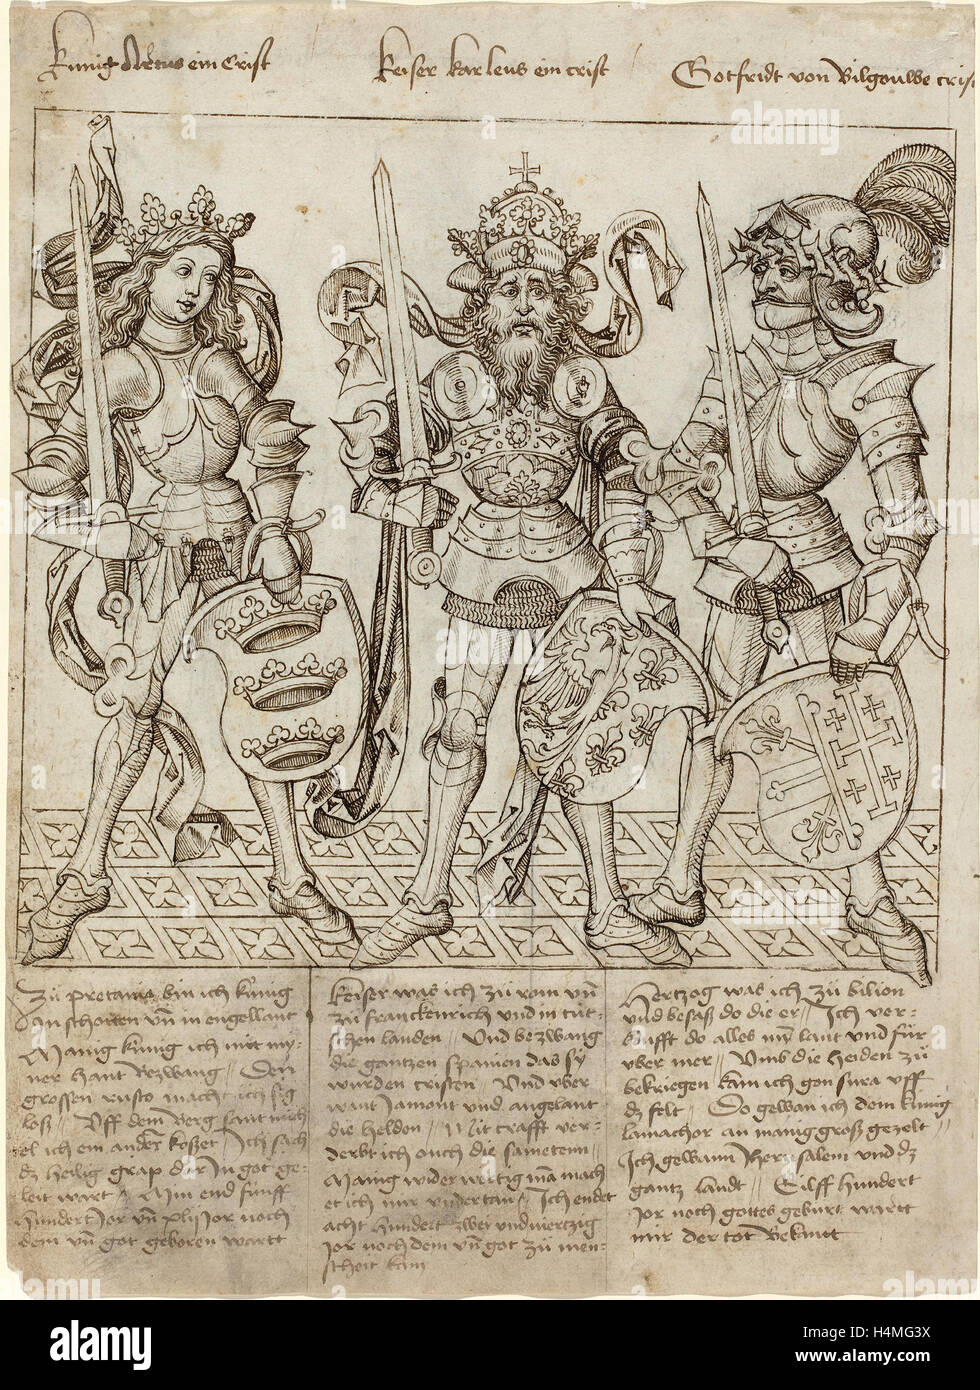 Kunig Artus ein Crist
Keiser karleus ein crist
Gotfridt von Bilgouwe crist
Zů pretania bin ich kunig
an schotten vn in engellant
Manig kunig ich mit my-
ner hant Bezwang Den
grossen ruso macht ich sig
loß Uff dem Berg sant mich
el ich ein anders koßet Ich sach
dz heilig grap dar in got ge-
leit wart Min end funff
hundert Jor vn
dem vn got geboren wartt
Keiser was ich zů rom vn
zů franckenrich vnd in tut-
schen landen Und bezwang
die gantzen spanien das sy
wurden cristen Und vber
want Jamont und angelant
die helden Mit crafft ver-
derbt ich ouch die
Manig widerwertig man mach
et ich mir vndertan Ich endet
acht hundert zwei und viertzig
Jor noch dem vn got zů men-
scheit kam
Hertzog was ich zů bilion
vnd besaß do die er Ich ver-
koufft do alles min lant und fůr
vber mer Umb die heiden zů
bekriegen kam ich gon sura vff
dz felt Do gewan ich dem kunig
lamachor an manig groß gezelt
Ich gewann Jherusalem und dz
gantz landt Eilff hundert
Jor noch gottes geburt wartt
mir der tot bekant
alamy
Image ID: H4MG3X
www.alamy.com